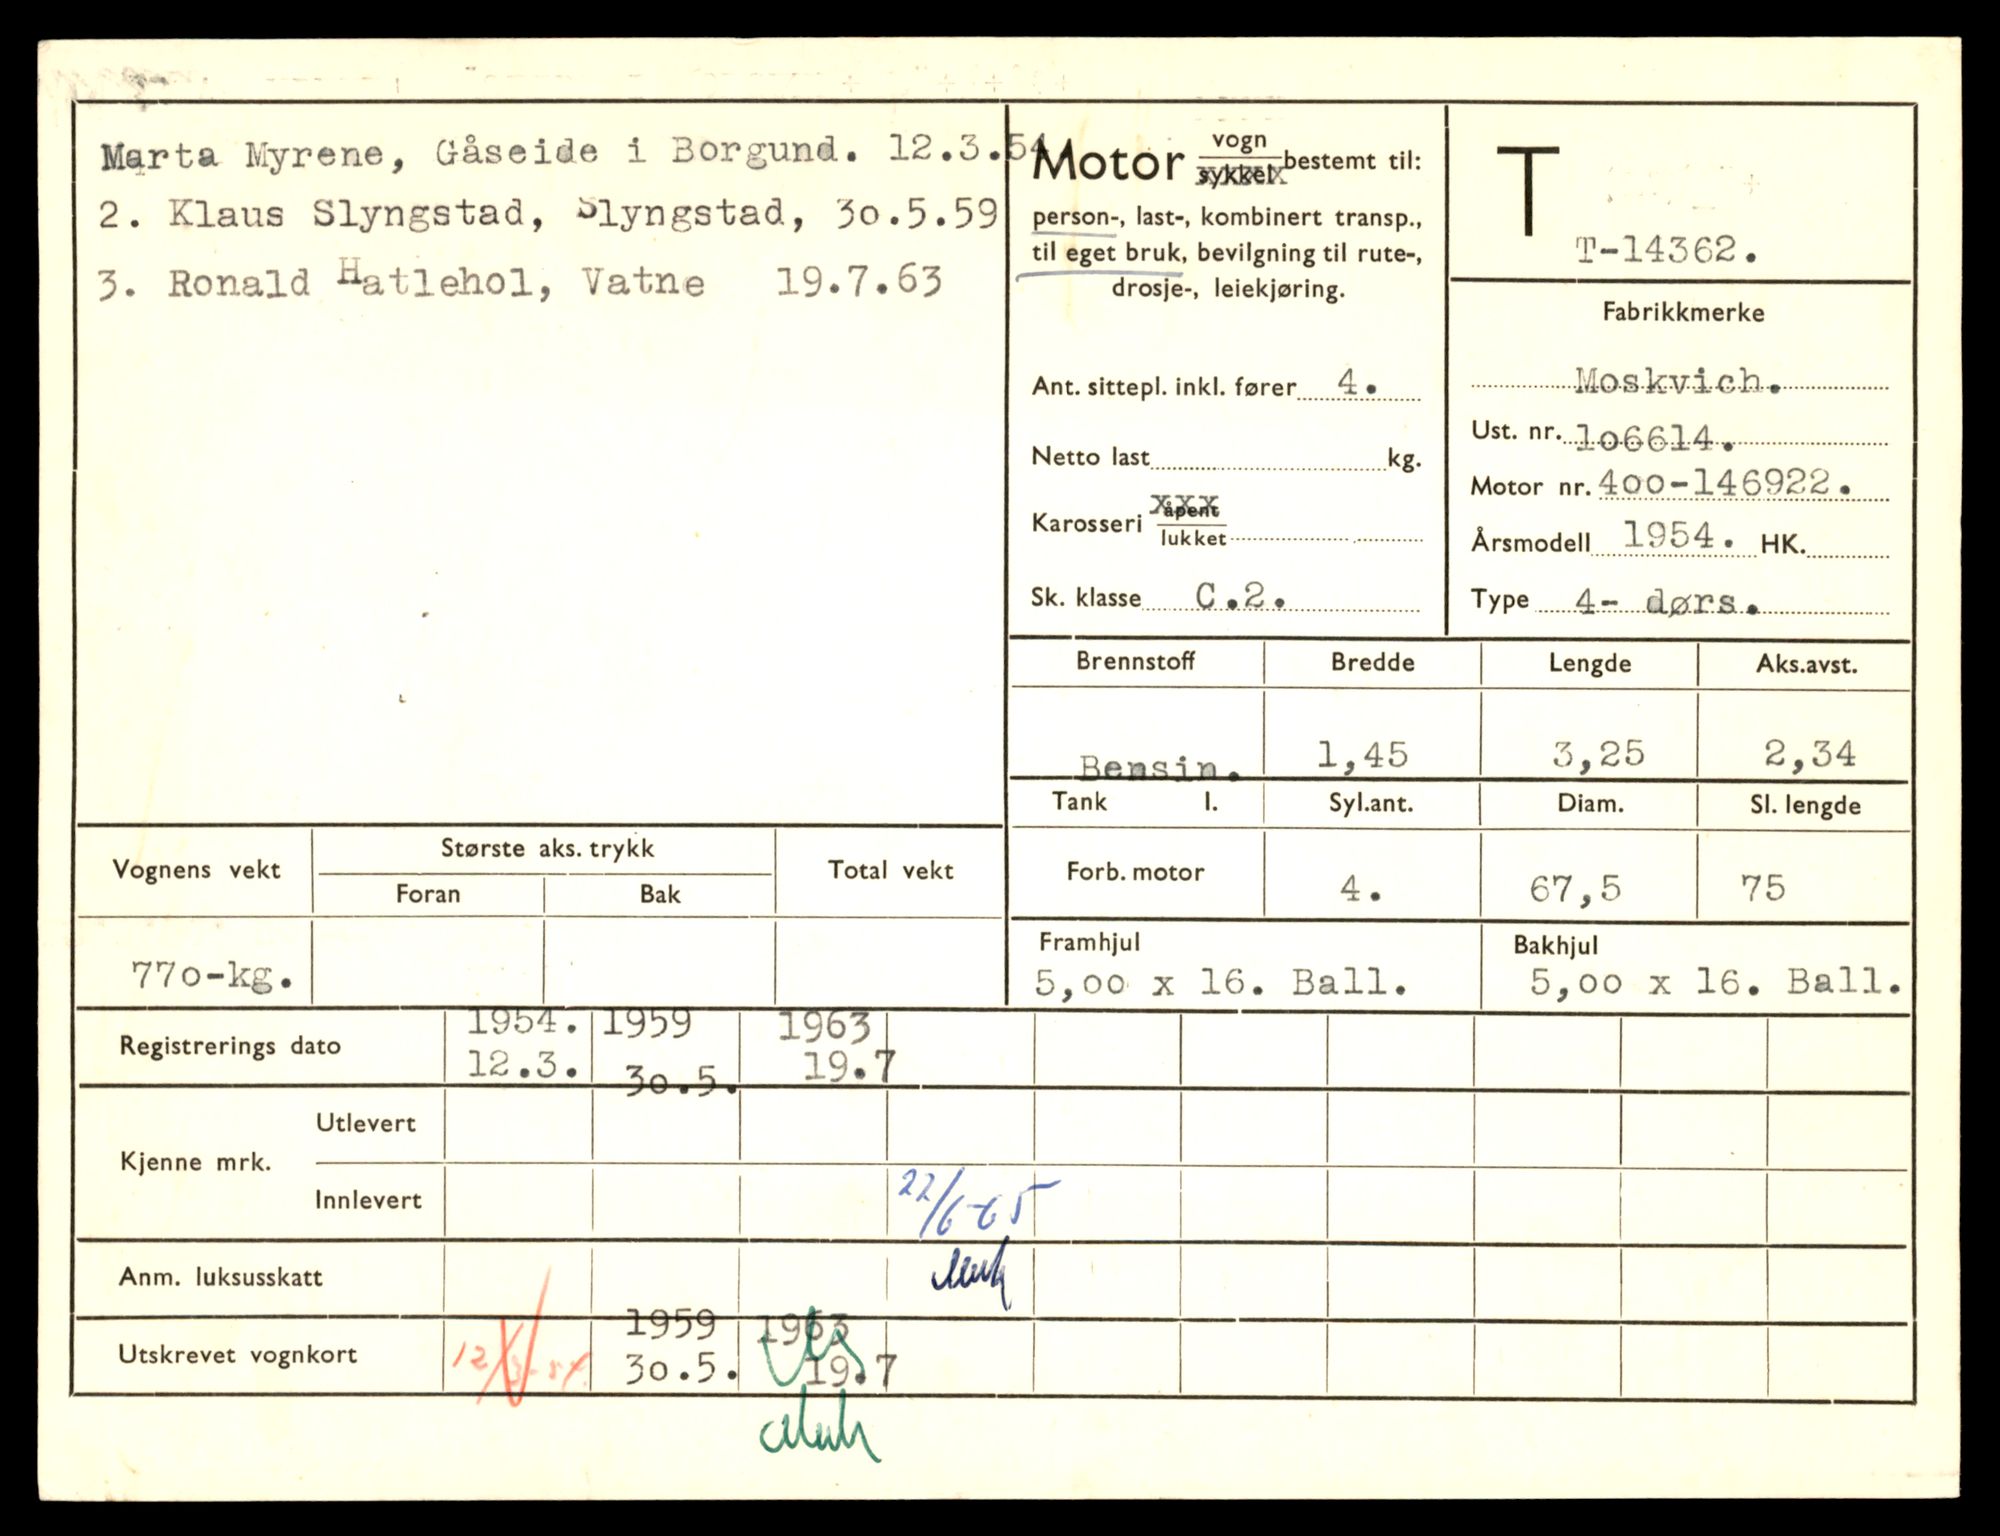 Marta Myrene, Gåseide i Borgund. 12.3.54.
2. Klaus Slyngstad, Slyngstad, 30.5.59
3. Ronald Hatlehol, Vatne 19.7.63
Motor vogn
sykkel bestemt til:
person-, last-, kombinert transp.,
til eget bruk, bevilgning til rute-,
drosje-, leiekjøring.
Ant. sittepl. inkl. fører 4.
Netto last kg.
Karosseri åpent
lukket
Sk. klasse C.2.
T
T-14362.
Fabrikkmerke
Moskvich.
Ust. nr. 1o6614.
Motor nr. 4oo-146922.
Årsmodell 1954. HK.
Type 4- dørs.
Brennstoff Bredde Lengde Aks.avst.
Bensin. 1,45 3,25 2,34
Tank l. Syl.ant. Diam. Sl. lengde
Forb. motor 4. 67,5 75
Framhjul Bakhjul
5,oo x 16. Ball. 5,oo x 16. Ball.
Vognens vekt Største aks. trykk Total vekt
Foran Bak
77o-kg.
Registrerings dato 1954. 1959 1963
12.3. 3o.5. 19.7
Kjenne mrk. Utlevert
Innlevert 22/6-65
Anm. luksusskatt
Utskrevet vognkort 12/3-54. 1959 1963
3o.5. 19.7